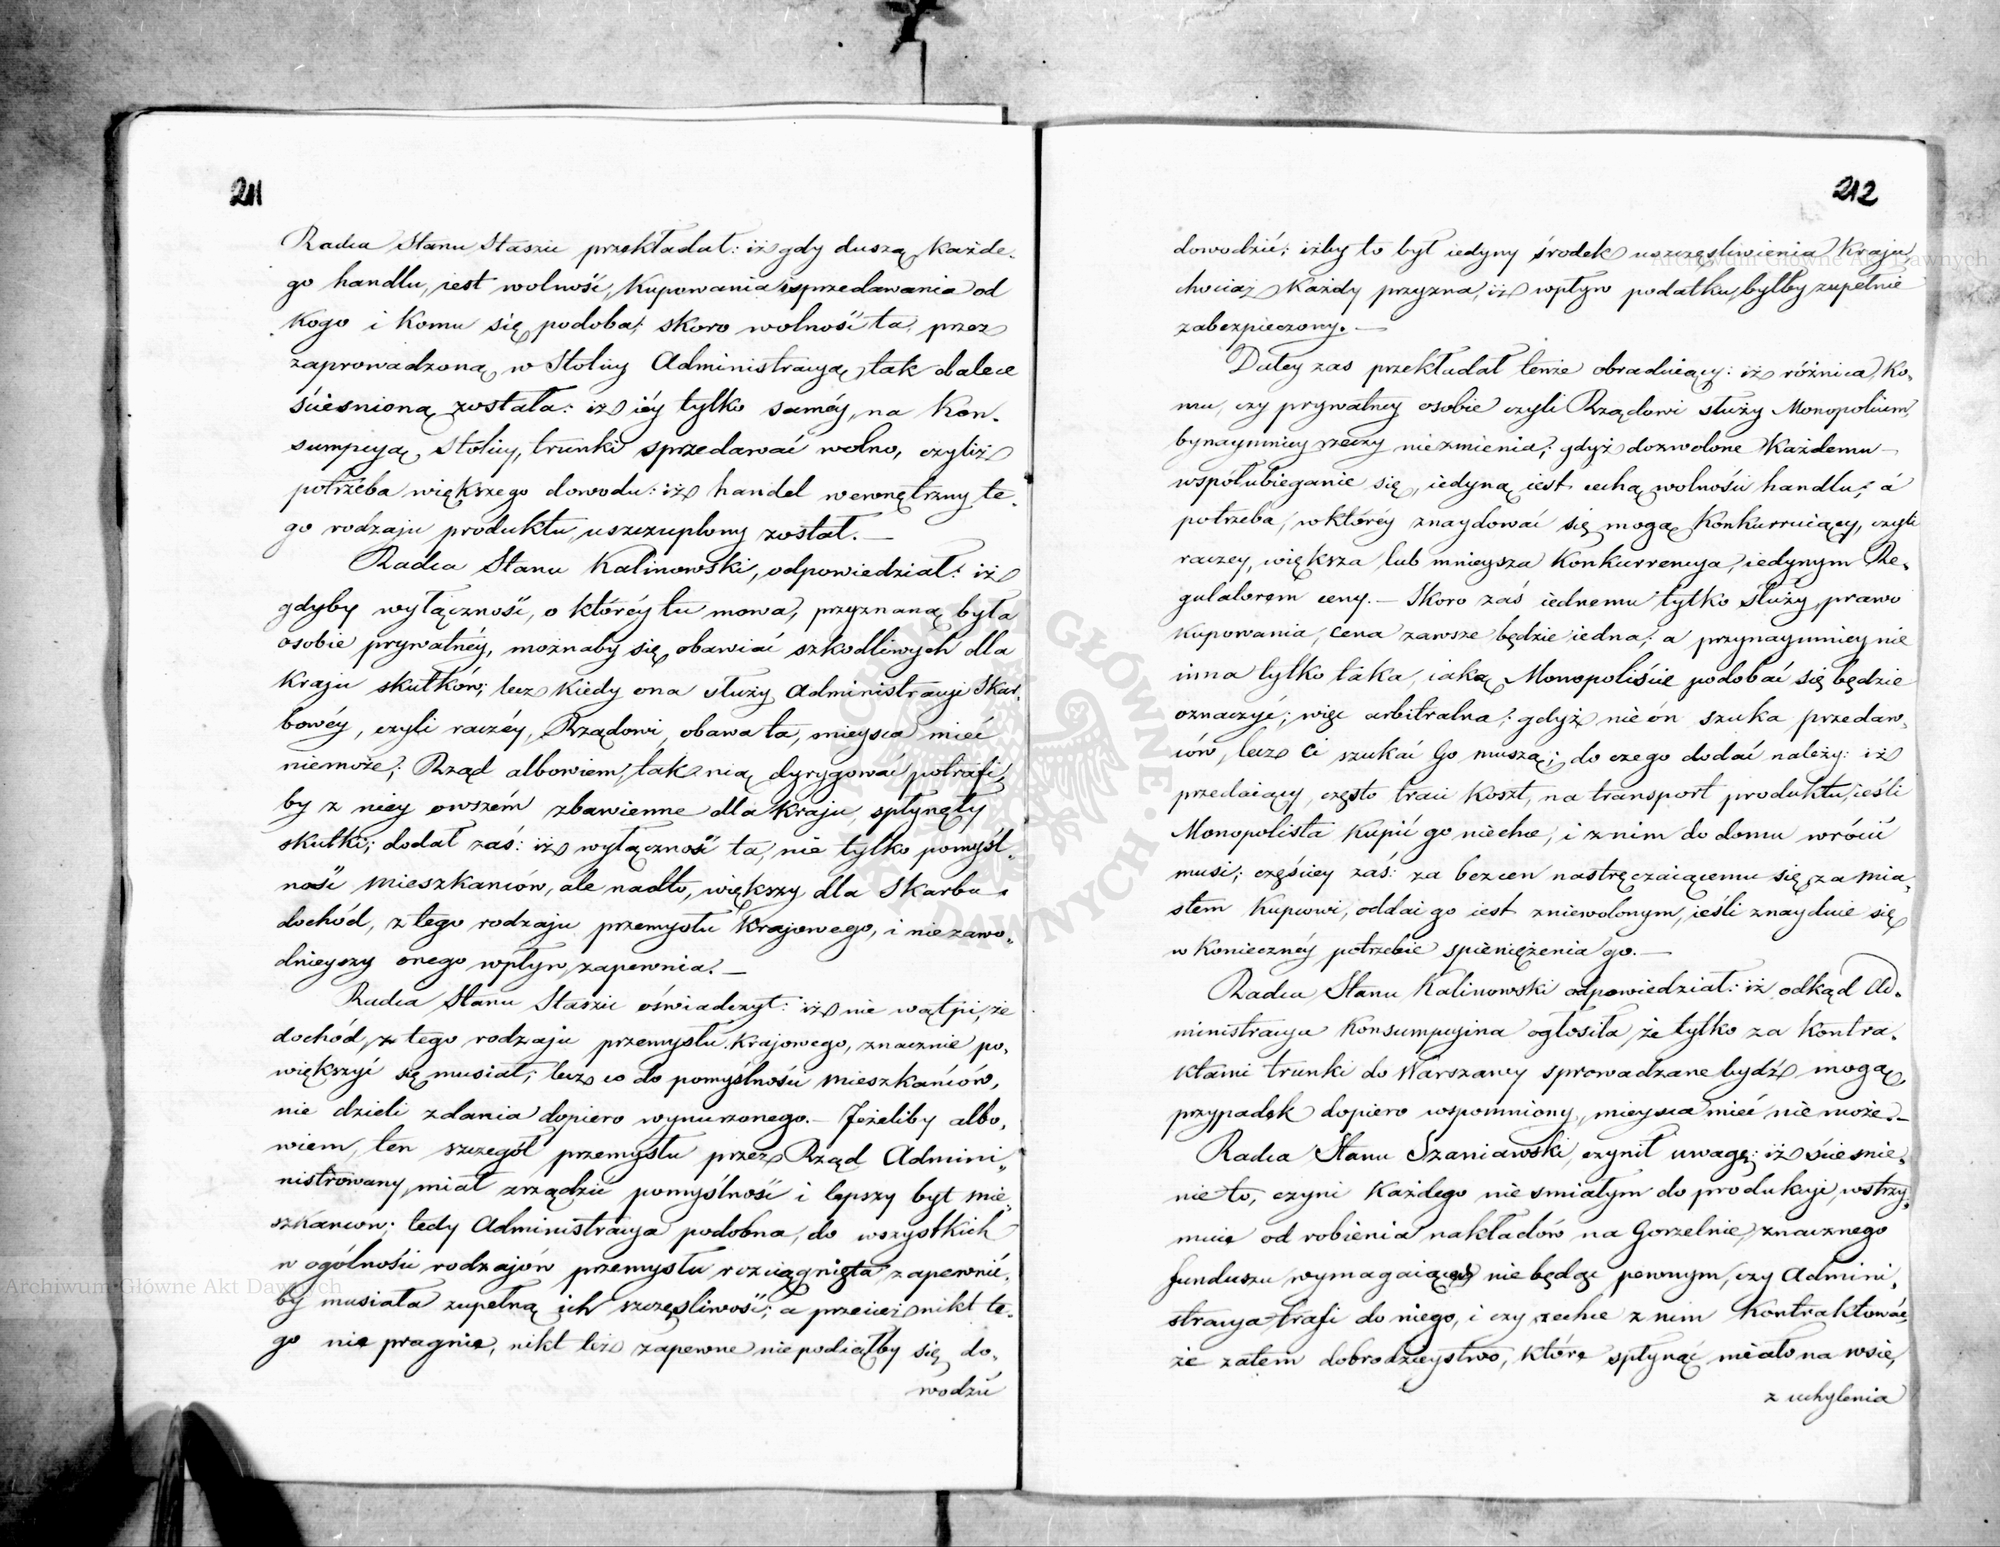 211
Radca Stanu Staszic przekładał: iż gdy duszą każde-
go handlu, iest wolność, kupowania i sprzedawania od
kogo i komu się podoba; skoro wolność ta, przez
zaprowadzoną w Stolicy Administracyą, tak dalece
ścieśnioną została: iż iéy tylko saméy, na kon-
sumpcyą Stolicy, trunki sprzedawać wolno, czyliż
potrzeba większego dowodu: iż handel wewnętrzny te-
go rodzaju produktu, uszczuplony został. —
Radca Stanu Kalinowski, odpowiedział: iż
gdyby wyłączność, o któréy tu mowa, przyznaną była
osobie prywatnéy, możnaby się obawiać szkodliwych dla
kraju skutków; lecz kiedy ona służy Administracyi Skar-
bowéy, czyli raczéy, Rządowi, obawa ta, mieysca mieć
niemoże; Rząd albowiem, tak nią dyrygować potrafi,
by z niey owszem zbawienne dla kraju, spłynęły
skutki; dodał zaś: iż wyłączność ta, nie tylko pomyśl-
ność mieszkańców, ale nadto, większy dla Skarbu
dochód, z tego rodzaju przemysłu krajowego, i niezawo-
dnieyszy onego wpływ, zapewnia. —
Radca Stanu Staszic oświadczył: iż nie wątpi, że
dochód, z tego rodzaju przemysłu krajowego, znacznie po-
większyć się musiał; lecz co do pomyślności mieszkańców,
nie dzieli zdania dopiero wynurzonego. — Jeżeliby albo-
wiem, ten szczegół przemysłu przez Rząd Admini-
nistrowany, miał zrządzić pomyślność i lepszy byt mie-
szkańcow; tedy Administracya podobna, do wszystkich
w ogólności rodzajów przemysłu rozciągnięta, zapewnić-
by musiała zupełną ich szczęśliwość; a przecież nikt te-
go nie pragnie, nikt też zapewne niepodiąłby się do-
wodzić
212
dowodzić; iżby to był iedyny środek uszczęśliwienia kraju,
chociaż każdy przyzna, iż wpływ podatku, byłby zupełnie
zabezpieczony. —
Daley zas przekładał tenże obraduiący: iż różnica, ko-
mu, czy prywatney osobie czyli Rządowi służy Monopolium,
bynaymniey rzeczy niezmienia; gdyż dozwolone każdemu —
współubieganie się, iedyną iest cechą wolności handlu; a
potrzeba, w któréy znaydować się mogą konkurruiący, czyli
raczey, większa lub mnieysza konkurrencya, iedynym Re-
gulatorem ceny. — Skoro zaś iednemu tylko służy prawo
kupowania, cena zawsze będzie iedna; a przynaymniey nie
inna tylko taka, iaką Monopoliście podobać się będzie
oznaczyć; więc arbitralna; gdyż nie ón szuka przedaw-
ców, lecz Ci szukać Go muszą; do czego dodać należy: iż
przedaiący, często traci koszt, na transport produktu, ieśli
Monopolista kupić go niechce, i z nim do domu wrócić
musi; częściey zaś: za bezcen nastręczaiącemu się za mia-
stem kupcowi, oddać go iest zniewolonym, ieśli znayduie się
w konieczнéy potrzebie spieniężenia go. —
Radca Stanu Kalinowski odpowiedział: iż odkąd Ad-
ministracya konsumpcyina ogłosiła, że tylko za kontra-
ktami trunki do Warszawy sprowadzane bydź mogą,
przypadek dopiero wspomniony, mieysca mieć nie może. —
Radca Stanu Szaniawski, czynił uwagę: iż ścieśnie-
nie to, czyni każdego nie smiałym do produkcyi, wstrzy-
muie od robienia nakładów na Gorzelnie, znacznego
funduszu wymagaiących niebędąc pewnym, czy Admini-
stracya trafi do niego, i czy zechce z nim kontraktować,
że zatem dobrodzieystwo, które spłynąć miało na wsie,
z uchylenia